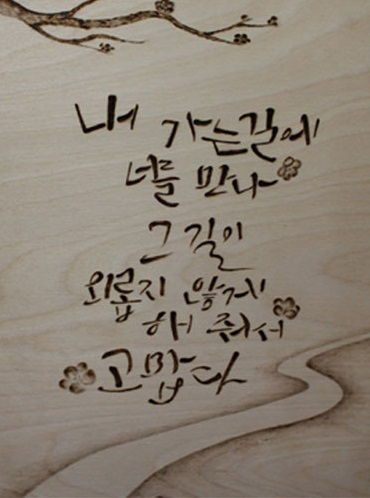 내 가는길에
너를 만나
그 길이
외롭지 않게
해 줘서
고맙다